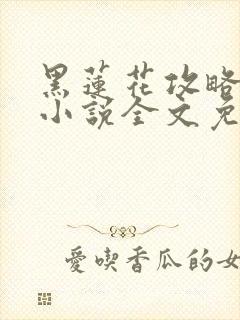 黑蓮花攻略
小說全文免
愛喫香瓜的女